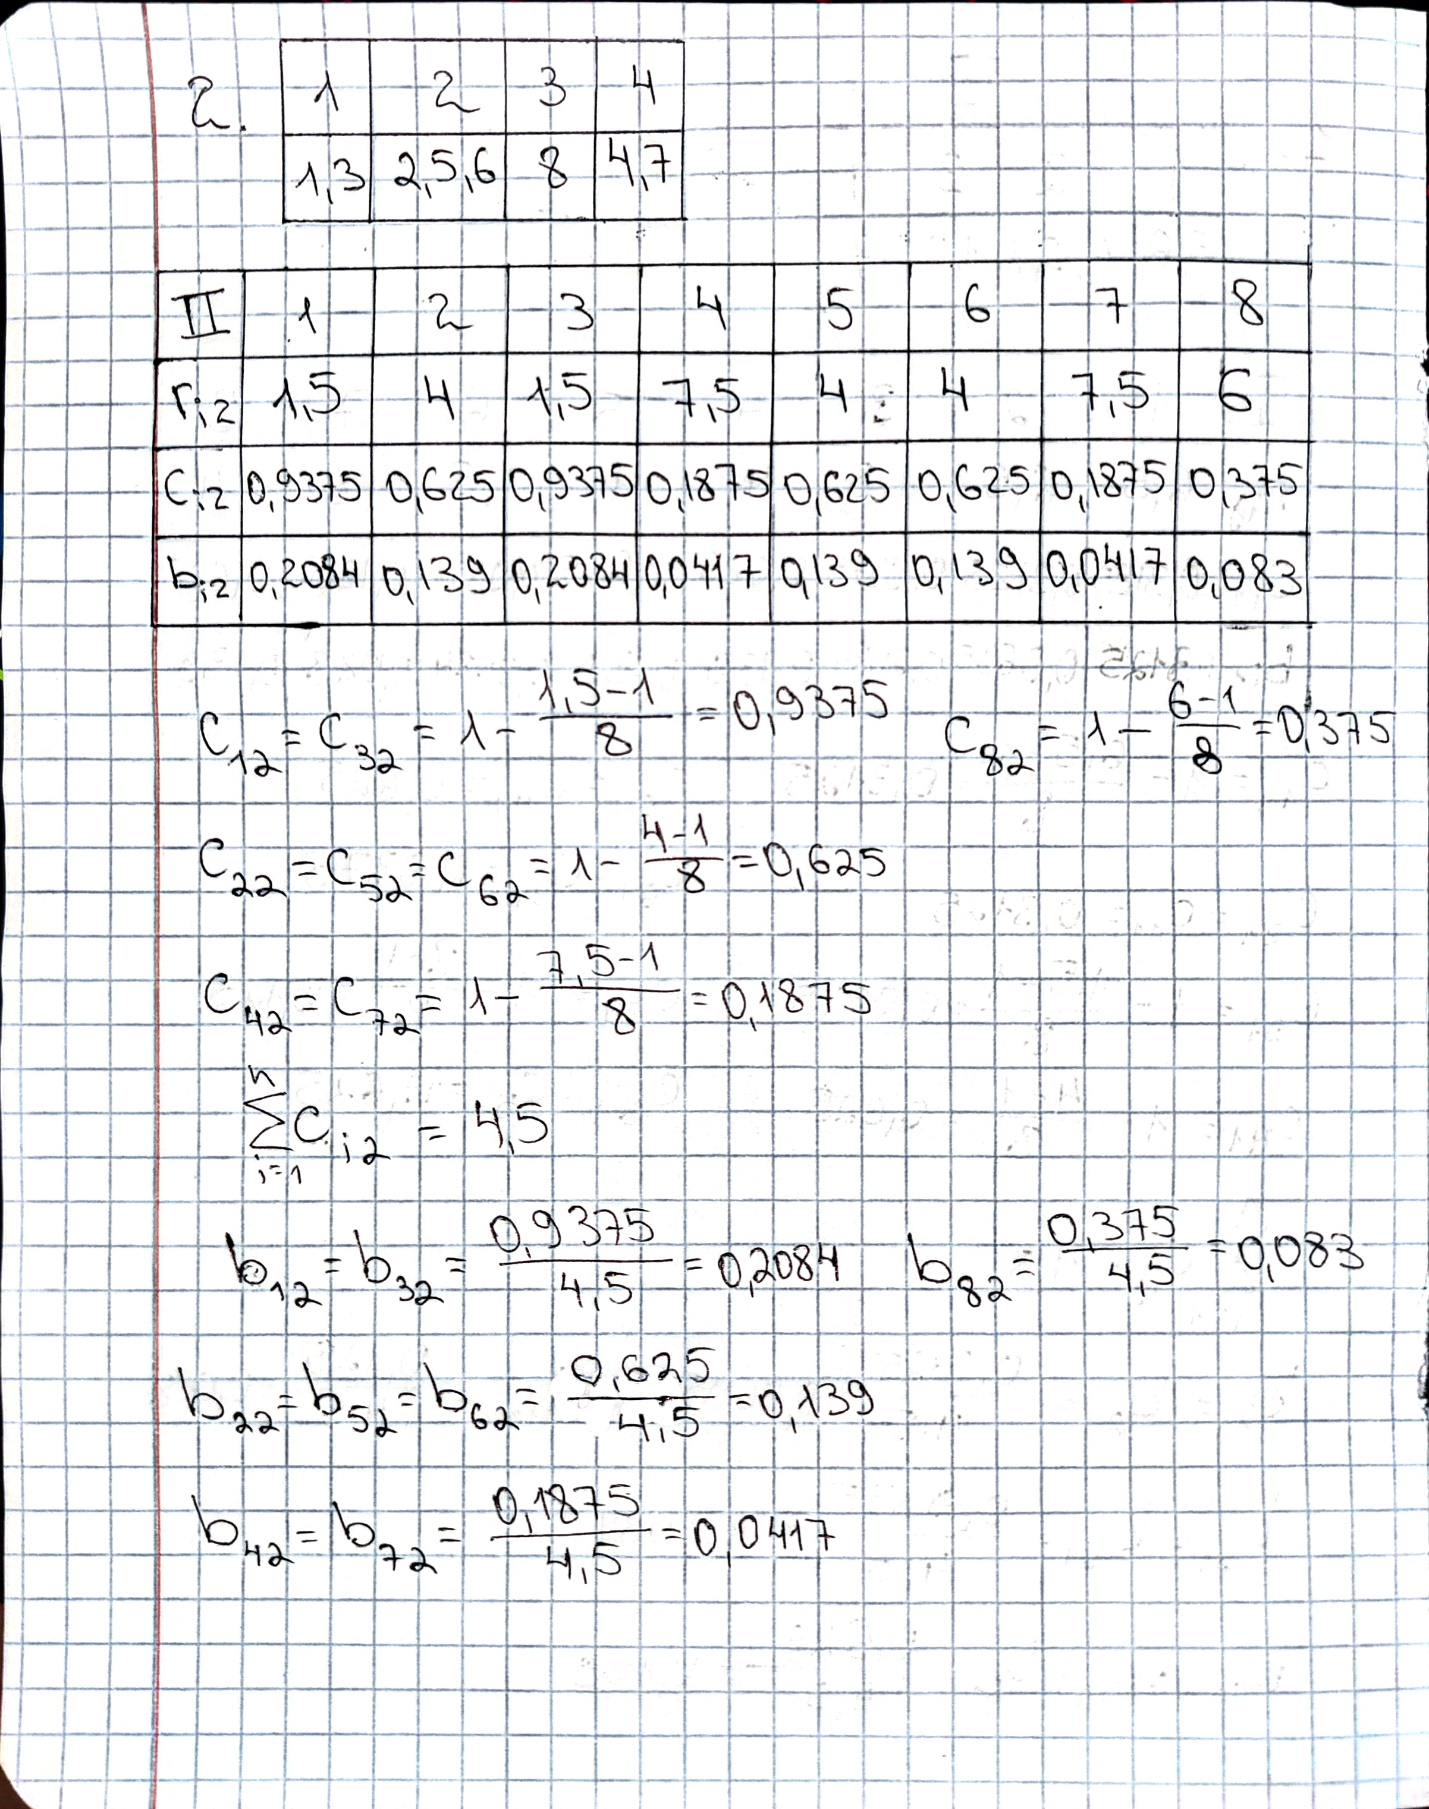 2. 1 2 3 4
1,3 2,5,6 8 4,7
II 1 2 3 4 5 6 7 8
r_i2 1,5 4 1,5 7,5 4 4 7,5 6
c_i2 0,9375 0,625 0,9375 0,1875 0,625 0,625 0,1875 0,375
b_i2 0,2084 0,139 0,2084 0,0417 0,139 0,139 0,0417 0,083
c_12 = c_32 = 1 - (1,5-1)/8 = 0,9375 c_82 = 1 - (6-1)/8 = 0,375
c_22 = c_52 = c_62 = 1 - (4-1)/8 = 0,625
c_42 = c_72 = 1 - (7,5-1)/8 = 0,1875
∑_{i=1}^{n} c_i2 = 4,5
b_12 = b_32 = 0,9375/4,5 = 0,2084 b_82 = 0,375/4,5 = 0,083
b_22 = b_52 = b_62 = 0,625/4,5 = 0,139
b_42 = b_72 = 0,1875/4,5 = 0,0417